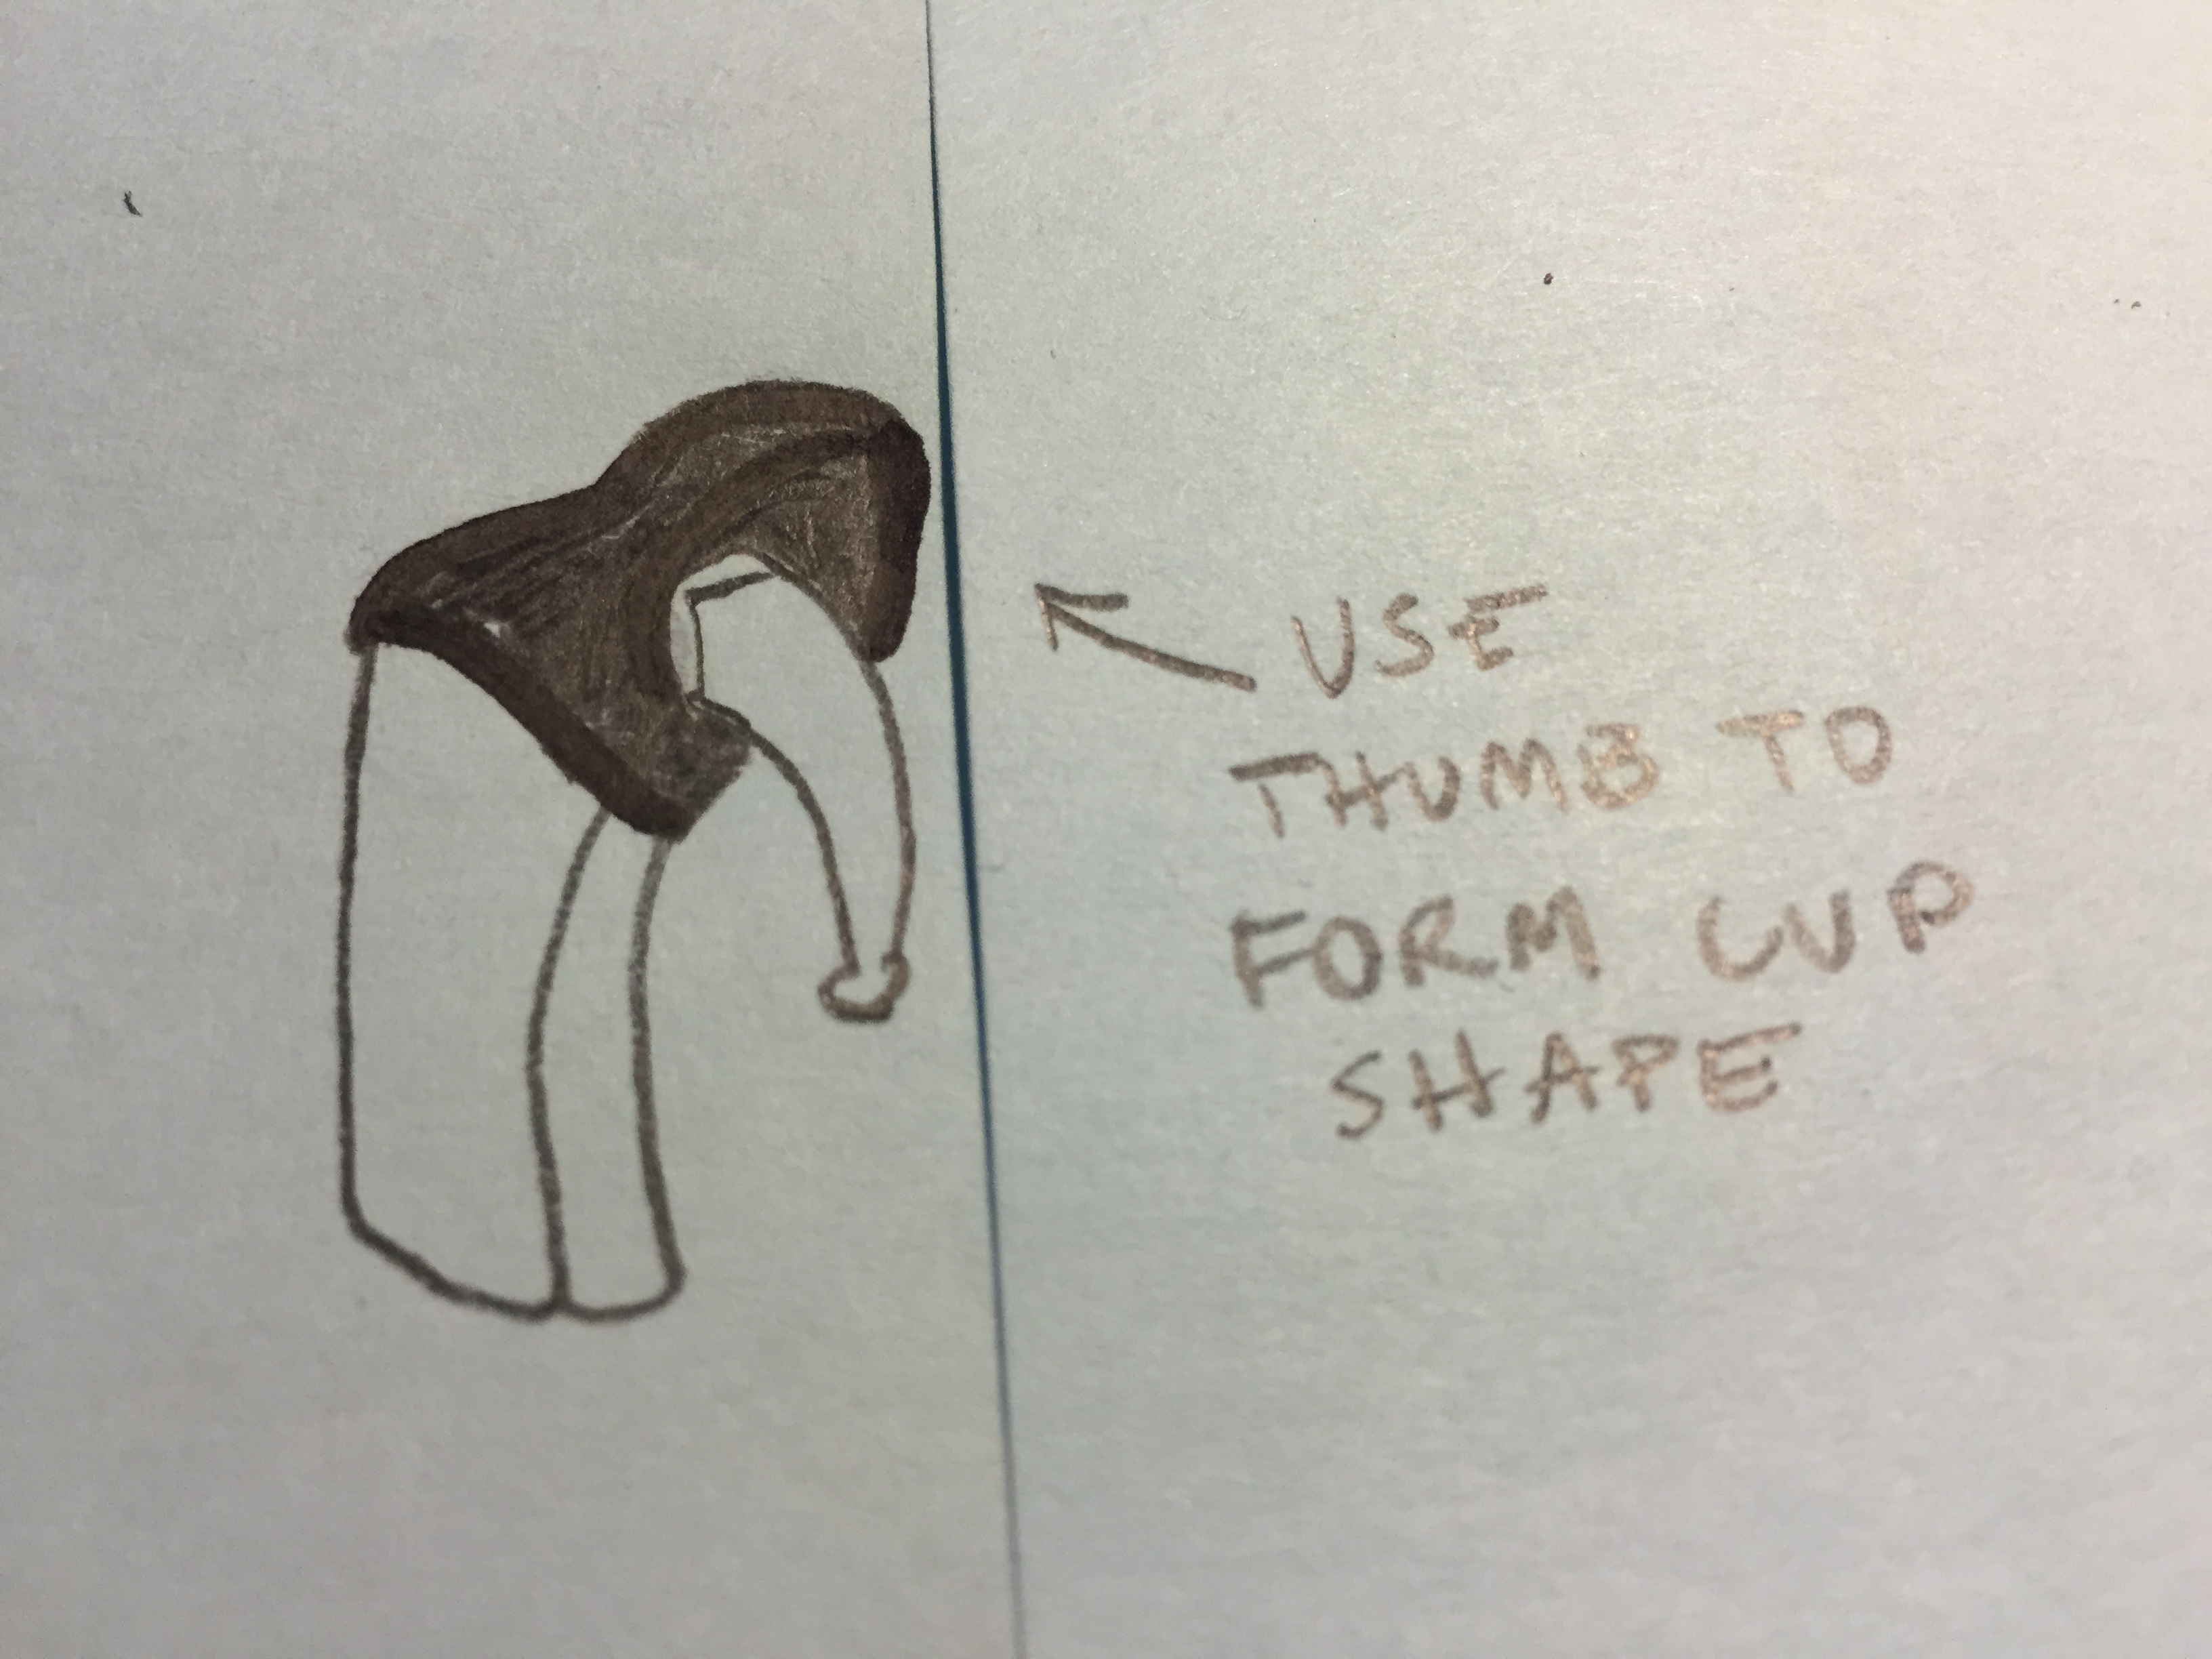 USE
THUMB TO
FORM CUP
SHAPE